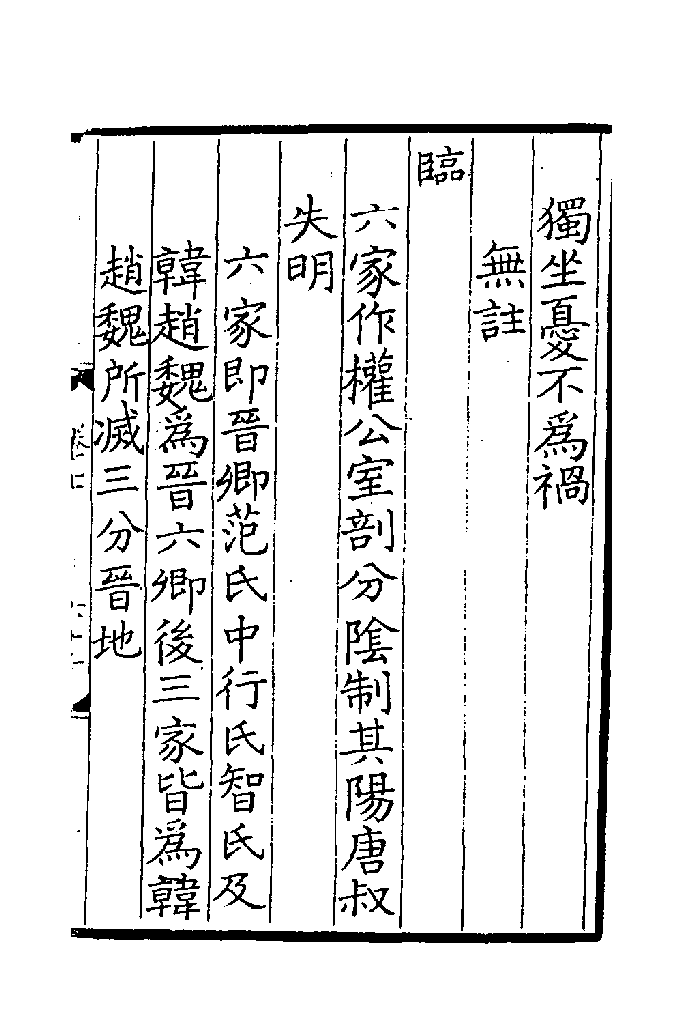 獨坐憂不為禍
無註
臨
六家作權公室剖分陰制其陽唐叔
失明
六家即晉卿范氏中行氏智氏及
韓趙魏為晉六卿後三家皆為韓
趙魏所滅三分晉地